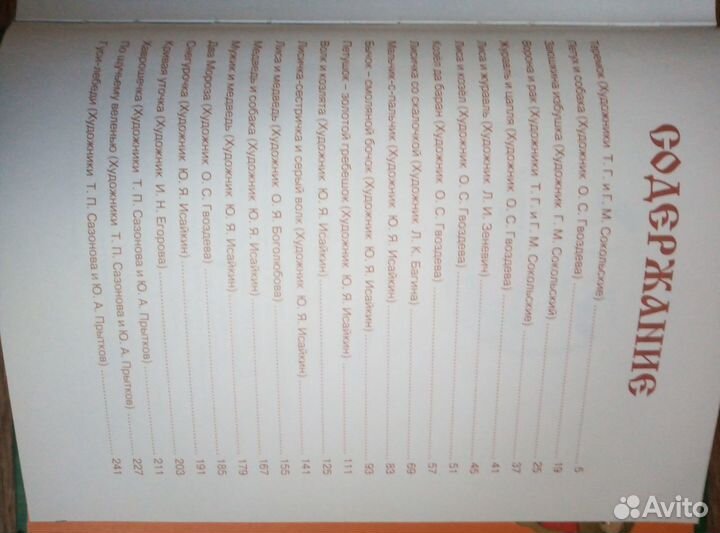 СОДЕРЖАНИЕ
Теремок (Художники Т. Г. и Г. М. Сокольские) 5
Петух и собака (Художник О. С. Гвоздева) 19
Заюшкина избушка (Художник Г. М. Сокольский) 25
Ворона и рак (Художники Т. Г. и Г. М. Сокольские) 37
Журавль и цапля (Художник О. С. Гвоздева) 41
Лиса и журавль (Художник Л. И. Зеневич) 45
Лиса и козёл (Художник О. С. Гвоздева) 51
Козёл да баран (Художник О. С. Гвоздева) 57
Лисичка со скалочкой (Художник Л. К. Багина) 69
Мальчик-с-пальчик (Художник Ю. Я. Исайкин) 83
Бычок – смоляной бочок (Художник Ю. Я. Исайкин) 93
Петушок – золотой гребешок (Художник Ю. Я. Исайкин) 111
Волк и козлята (Художник Ю. Я. Исайкин) 125
Лисичка-сестричка и серый волк (Художник Ю. Я. Исайкин) 141
Лиса и медведь (Художник О. Я. Боголюбова) 155
Медведь и собака (Художник Ю. Я. Исайкин) 167
Мужик и медведь (Художник Ю. Я. Исайкин) 179
Два Мороза (Художник О. С. Гвоздева) 185
Снегурочка (Художник Ю. Я. Исайкин) 191
Кривая уточка (Художник И. Н. Егорова) 203
Хаврошечка (Художники Т. П. Сазонова и Ю. А. Прытков) 211
По щучьему веленью (Художники Т. П. Сазонова и Ю. А. Прытков) 227
Гуси-лебеди (Художники Т. П. Сазонова и Ю. А. Прытков) 241
Avito